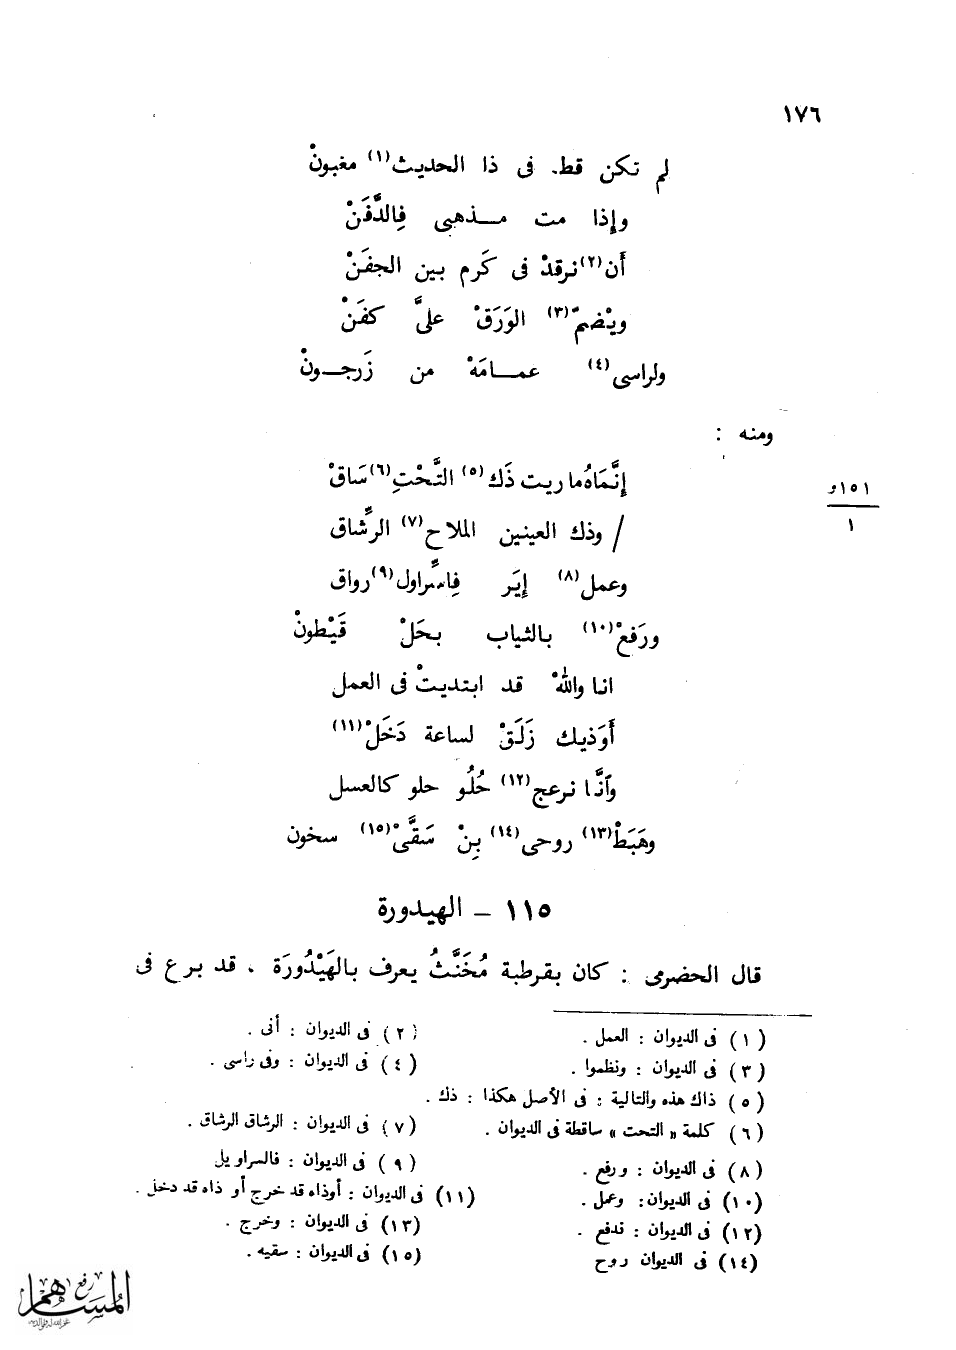 ١٧٦
لم تكن قط. فى ذا الحديث(١) مغبونْ
وإذا مت مـــذهبى فِالدَّفَنْ
أَن(٢) نرقدْ فى كَرم بين الجفَنْ
ويْضمّ(٣) الوَرَقْ علىَّ كفَنْ
ولراسى(٤) عمـــامَهْ من زَرجــونْ
ومنه :
إنَّمَاهُ ما ريت ذَك(٥) التَّحْتِ(٦) سَاقْ
١٥١ و
/ وذك العينين الملاح(٧) الرِّشاق
١
وعمل(٨) إيَر فِاسِّراول(٩) رواق
ورَفعْ(١٠) بالثياب بحَلْ قَيْطونْ
انا واللهْ قد ابتديتْ فى العمل
أَوَذيك زَلَقْ لساعة دَخَلْ(١١)
وآنَّا نرعج(١٢) حُلُو حلو كالعسل
وهَبَطْ(١٣) روحى(١٤) بِنْ سَقَّىْ(١٥) سخون
١١٥ – الهيدورة
قال الحضرمى : كان بقرطبة مُخَنَّثُ يعرف بالهَيْدُورَة ، قد برع فى
(١) فى الديوان : العمل .
(٢) فى الديوان : أنى .
(٣) فى الديوان : ونظموا .
(٤) فى الديوان : وفى راسى .
(٥) ذاك هذه والتالية : فى الأصل هكذا : ذك .
(٦) كلمة « التحت » ساقطة فى الديوان .
(٧) فى الديوان : الرشاق الرشاق .
(٨) فى الديوان : ورفع .
(٩) فى الديوان : فالسراويل
(١٠) فى الديوان: وعمل .
(١١) فى الديوان : أوذاه قد خرج أو ذاه قد دخل .
(١٢) فى الديوان : ندفع .
(١٣) فى الديوان : وخرج .
(١٤) فى الديوان روح
(١٥) فى الديوان : سقيه .
رفع
المساهم